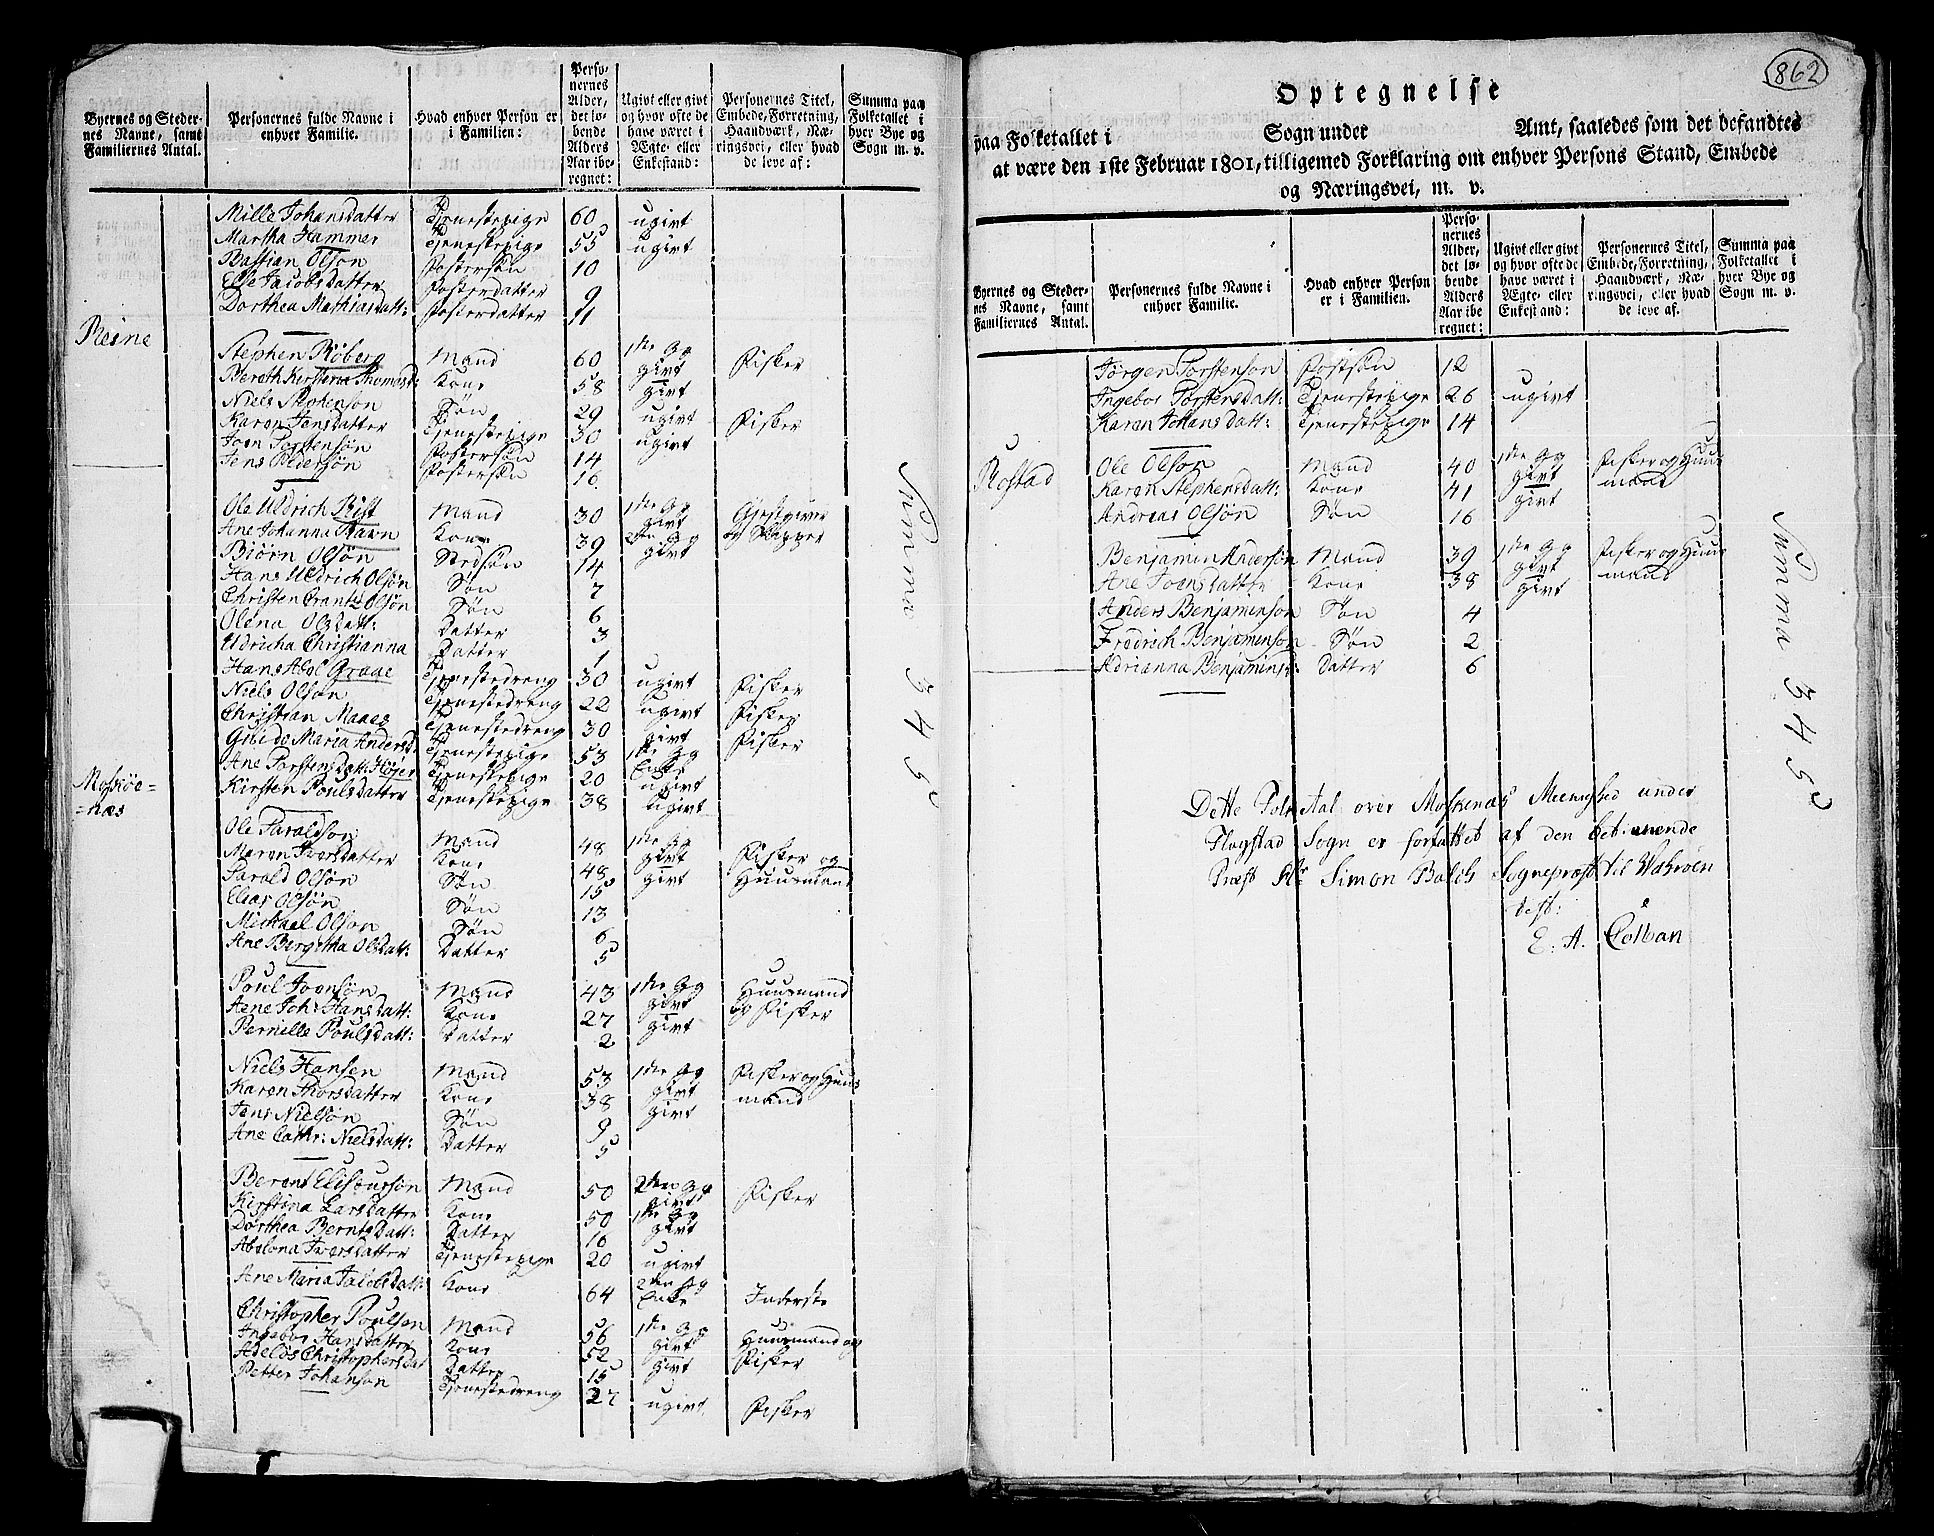 Byernes og Steder-
nes Navne, samt
Familiernes Antal.
Personernes fulde Navne i
enhver Familie.
Hvad enhver Person er
i Familien:
Perso-
nernes
Alder,
det lø-
bende
Alders
Aar ibe-
regnet:
Ugivt eller givt
og hvor ofte de
have været i
Ægte- eller
Enkestand:
Personernes Titel,
Embede, Forretning,
Haandværk, Næ-
ringsvei, eller hvad
de leve af:
Summa paa
Folketallet i
hver Bye og
Sogn m. v.
Mille Johansdatter Tjenestepige 60 ugivt
Martha Hammer Tjenestepige 55 ugivt
Bastian Olsøn Fostersøn 10
Elle Jacobsdatter Fosterdatter 9
Dorthea Mathiasdatt: Fosterdatter 11
Reine
Stephen Røberg Mand 60 1ste Gg givt Fisker
Bereth Kirstena Thomasd: Kone 58 givt
Niels Stephenson Søn 29 ugivt Fisker
Karen Jensdatter Tjenestepige 30 ugivt
Joen Torstensøn Fostersøn 14
Jens Pedersøn Fostersøn 16
Ole Uldrich Rist Mand 30 1ste Gg givt Gjestgiver
Ane Johanna Ravn Kone 39 2den Gg givt og Skipper
Biørn Olsøn Stedsøn 14
Hans Uldrich Olsøn Søn 7
Christen Crantz Olsøn Søn 6
Olena Olsdatt: Datter 3
Uldricha Christianna Datter 1
Hans Abel Graae Tjenestedreng 30 ugivt Fisker
Niels Olsøn Tjenestedreng 22 ugivt Fisker
Christian Maaes Tjenestedreng 30 givt Fisker
Maria Andersd. Tjenestepige 53 1ste Gg Enke
Ane Torstensdatt: Høyer Tjenestepige 20 ugivt
Kirsten Poulsdatter Tjenestepige 38 Ugivt
Moskøe=
=næs
Ole Taraldson Mand 48 1ste Gg givt Fisker og
Maren Iversdatter Kone 48 givt Huusmand
Tarald Olsøn Søn 15
Elias Olsøn Søn 13
Michael Olson Søn 6
Ane Bergitha Olsdatt: Datter 5
Poul Joensøn Mand 43 1ste Gg givt Huusmand
Aene Joh: Hansdatt: Kone 27 givt og Fisker
Pernille Poulsdatt: Datter 2
Niels Hansen Mand 53 1ste Gg givt Fisker og Huus
Karen Thorsdatter Kone 38 givt mand
Jens Nielsøn Søn 9
Ane Cathr: Nielsdatt: Datter 5
Berent Elisæussøn Mand 50 2den Gg givt Fisker
Kirstina Larsdatter Kone 50 1ste Gg givt
Dorthea Berntsdatt: Datter 16
Abelona Iversdatter Tjenestepige 20 ugivt
Ane Maria Jacobsdatt: Kone 64 2den Gg Enke Inderste
Christopher Poulsen Mand 56 1ste Gg givt Huusmand og
Ingebor Hansdatter Kone 52 givt Fisker
Adelos Christophersdat Datter 15
Petter Johanson Tjenestedreng 27 ugivt Fisker
Summa 345
862
Optegnelse
paa Folketallet i Sogn under Amt, saaledes som det befandtes
at være den 1ste Februar 1801, tilligemed Forklaring om enhver Persons Stand, Embede
og Næringsvei, m. v.
Byernes og Steder-
nes Navne, samt
Familiernes Antal.
Personernes fulde Navne i
enhver Familie.
Hvad enhver Person
er i Familien.
Perso-
nernes
Alder,
det lø-
bende
Alders
Aar ibe-
regnet:
Ugivt eller givt
og hvor ofte de
have været i
Ægte- eller
Enkestand:
Personernes Titel,
Embede, Forretning,
Haandværk, Næ-
ringsvei, eller hvad
de leve af.
Summa paa
Folketallet i
hver Bye og
Sogn m. v.
Jørgen Torstenson Fostsøn 12
Ingebor Torstensdatt: Tjenestepige 26 ugivt
Karen Johansdatt: Tjenestepige 14
Rostad
Ole Olsøn Mand 40 1ste Gg givt Fisker og Huus
Karen Stephensdatt: Kone 41 givt mand
Andreas Olsøn Søn 16
Benjamin Andersøn Mand 39 1ste Gg givt Fisker og Huus
Ane Joensdatter Kone 38 givt mand
Anders Benjaminson Søn 4
Fredrich Benjaminson Søn 2
Adrianna Benjamins: Datter 6
Summa 345
Dette Folketal over Moskenæs Meenighed under
Flagstad Sogn er forfattet af den betienende
Præst Hr Simon Balch Sognepræst til Værøen
test:
E. A. Colban